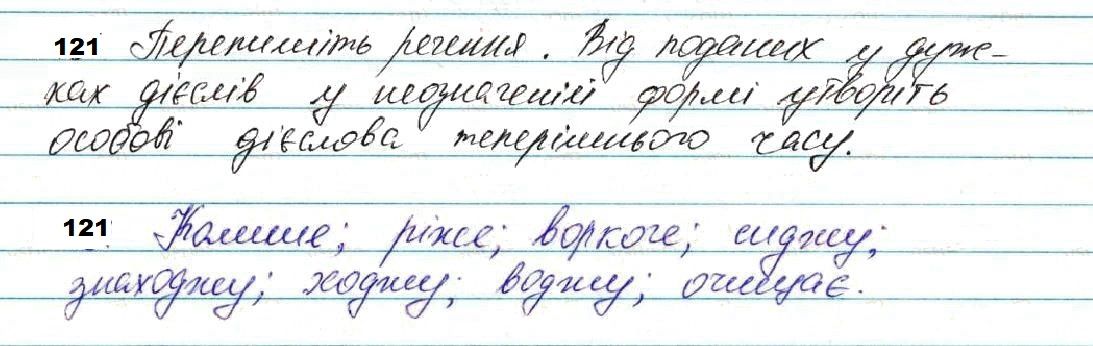 121 Перепишіть речення. Від поданих у дуж-
ках дієслів у неозначеній формі утворіть
особові дієслова теперішнього часу.
121 Колише; ріже; воркоче; сиджу;
знаходжу; ходжу; воджу; очищає.